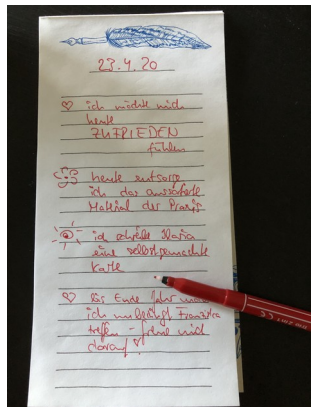 23.4.20
ich möchte mich
heute
ZUFRIEDEN
fühlen
heute entsorge
ich das aussortierte
Material der Praxis
ich schreibe
eine selbstgemachte
Karte
bis Ende Jahr
ich unbedingt Franziska
treffen - freue mich
darauf!